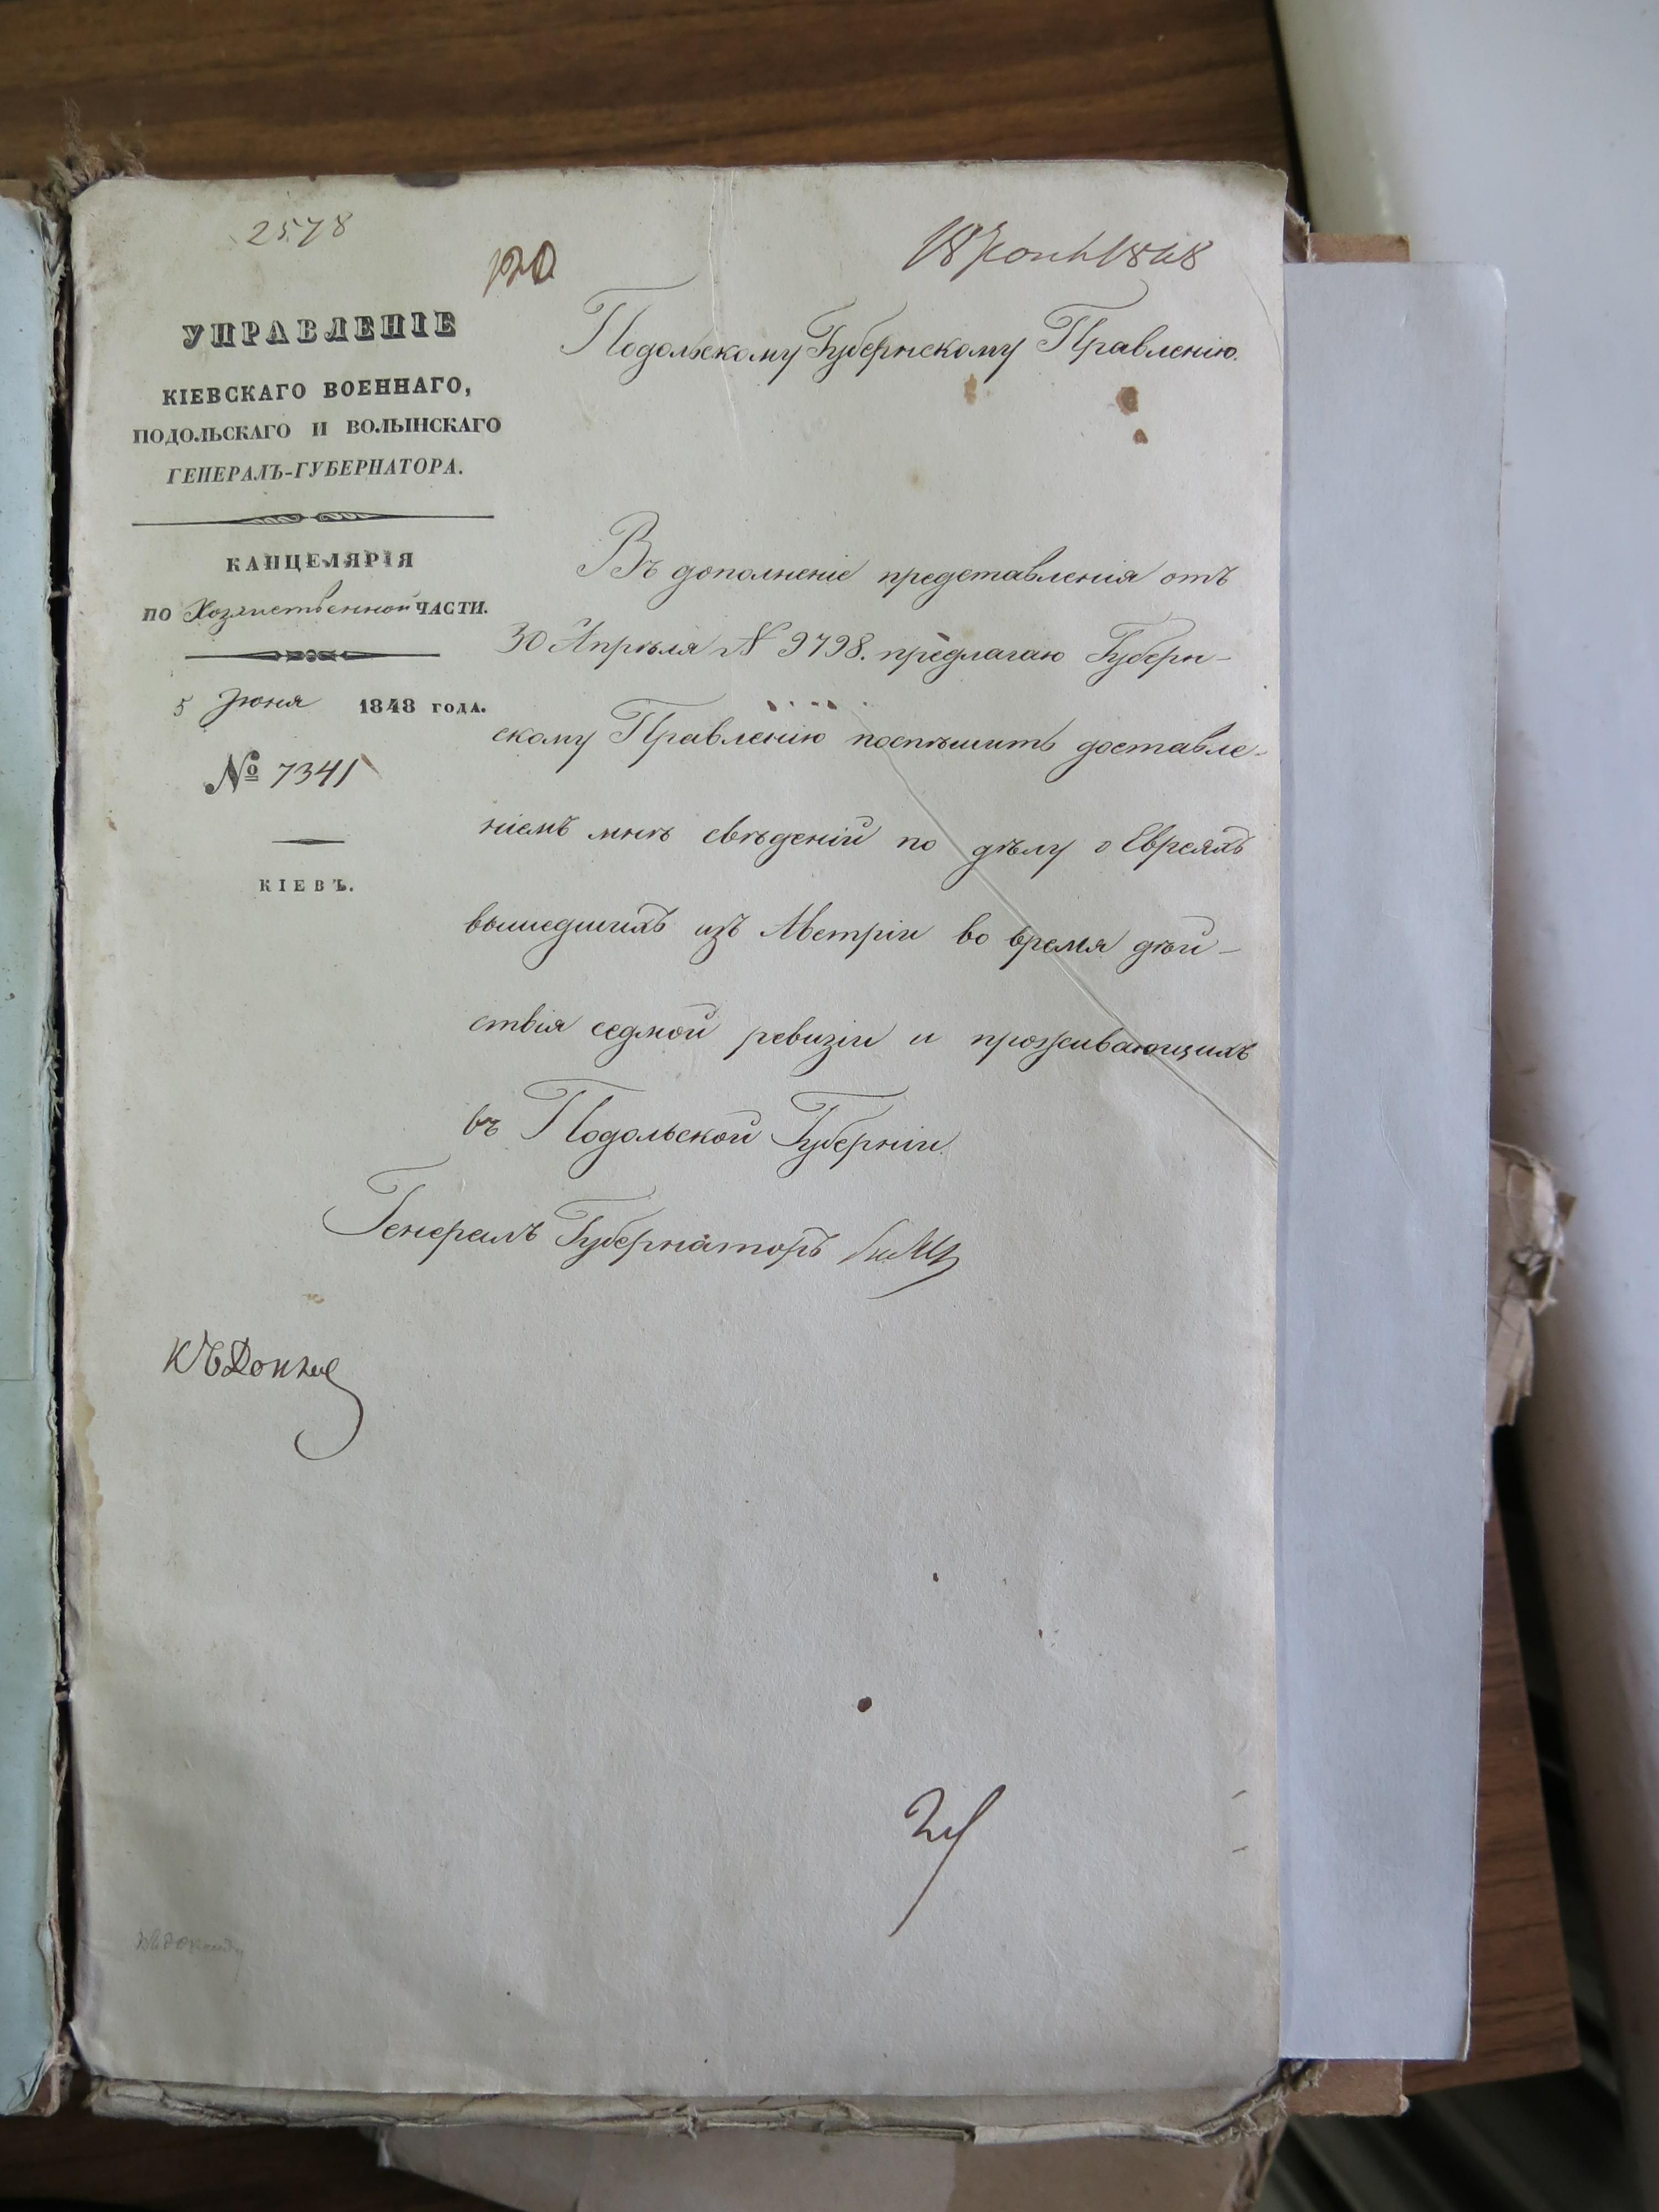 2578
120
18 Іюня 1848
УПРАВЛЕНІЕ
КІЕВСКАГО ВОЕННАГО,
ПОДОЛЬСКАГО И ВОЛЫНСКАГО
ГЕНЕРАЛЪ-ГУБЕРНАТОРА.
КАНЦЕЛЯРІЯ
ПО Хозяиственной ЧАСТИ.
5 Іюня 1848 ГОДА.
№ 7341
КІЕВЪ.
Подольскому Губернскому Правленію.
Въ дополненіе представленія отъ
30 Апрѣля № 9798. предлагаю Губерн-
скому Правленію поспѣшить доставле-
ніемъ мнѣ свѣденій по дѣлу о Евреяхъ
вышедшихъ изъ Австріи во время дѣй-
ствія седмой ревизіи и проживающихъ
въ Подольской Губерніи.
Генералъ Губернаторъ